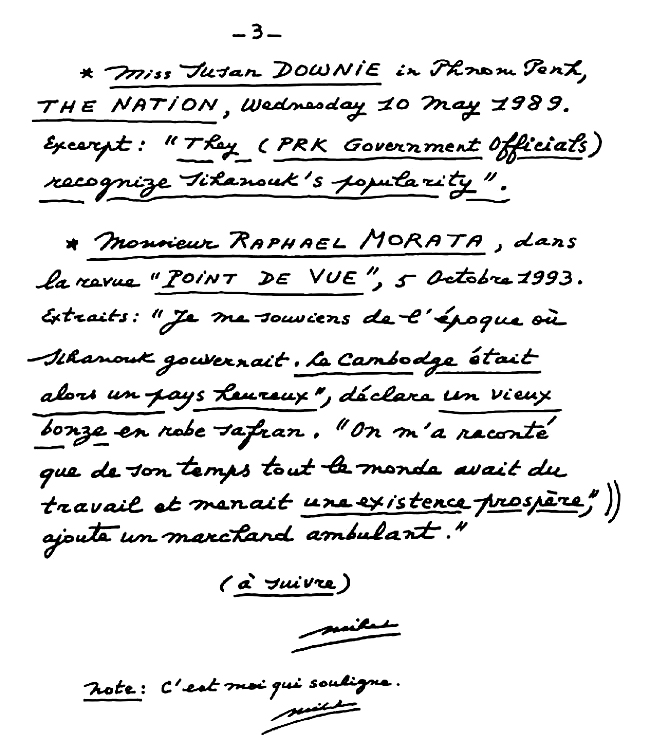 -3-
* Miss Susan DOWNIE in Phnom Penh,
THE NATION, Wednesday 10 May 1989.
Excerpt: "They (PRK Government Officials)
recognize Sihanouk's popularity".
* Monsieur RAPHAEL MORATA, dans
la revue "POINT DE VUE", 5 Octobre 1993.
Extraits: "Je me souviens de l'époque où
Sihanouk gouvernait. Le Cambodge était
alors un pays heureux", déclara un vieux
bonze en robe safran. "On m'a raconté
que de son temps tout le monde avait du
travail et menait une existence prospère,"))
ajoute un marchand ambulant."
(à suivre)
Note: C'est moi qui souligne.